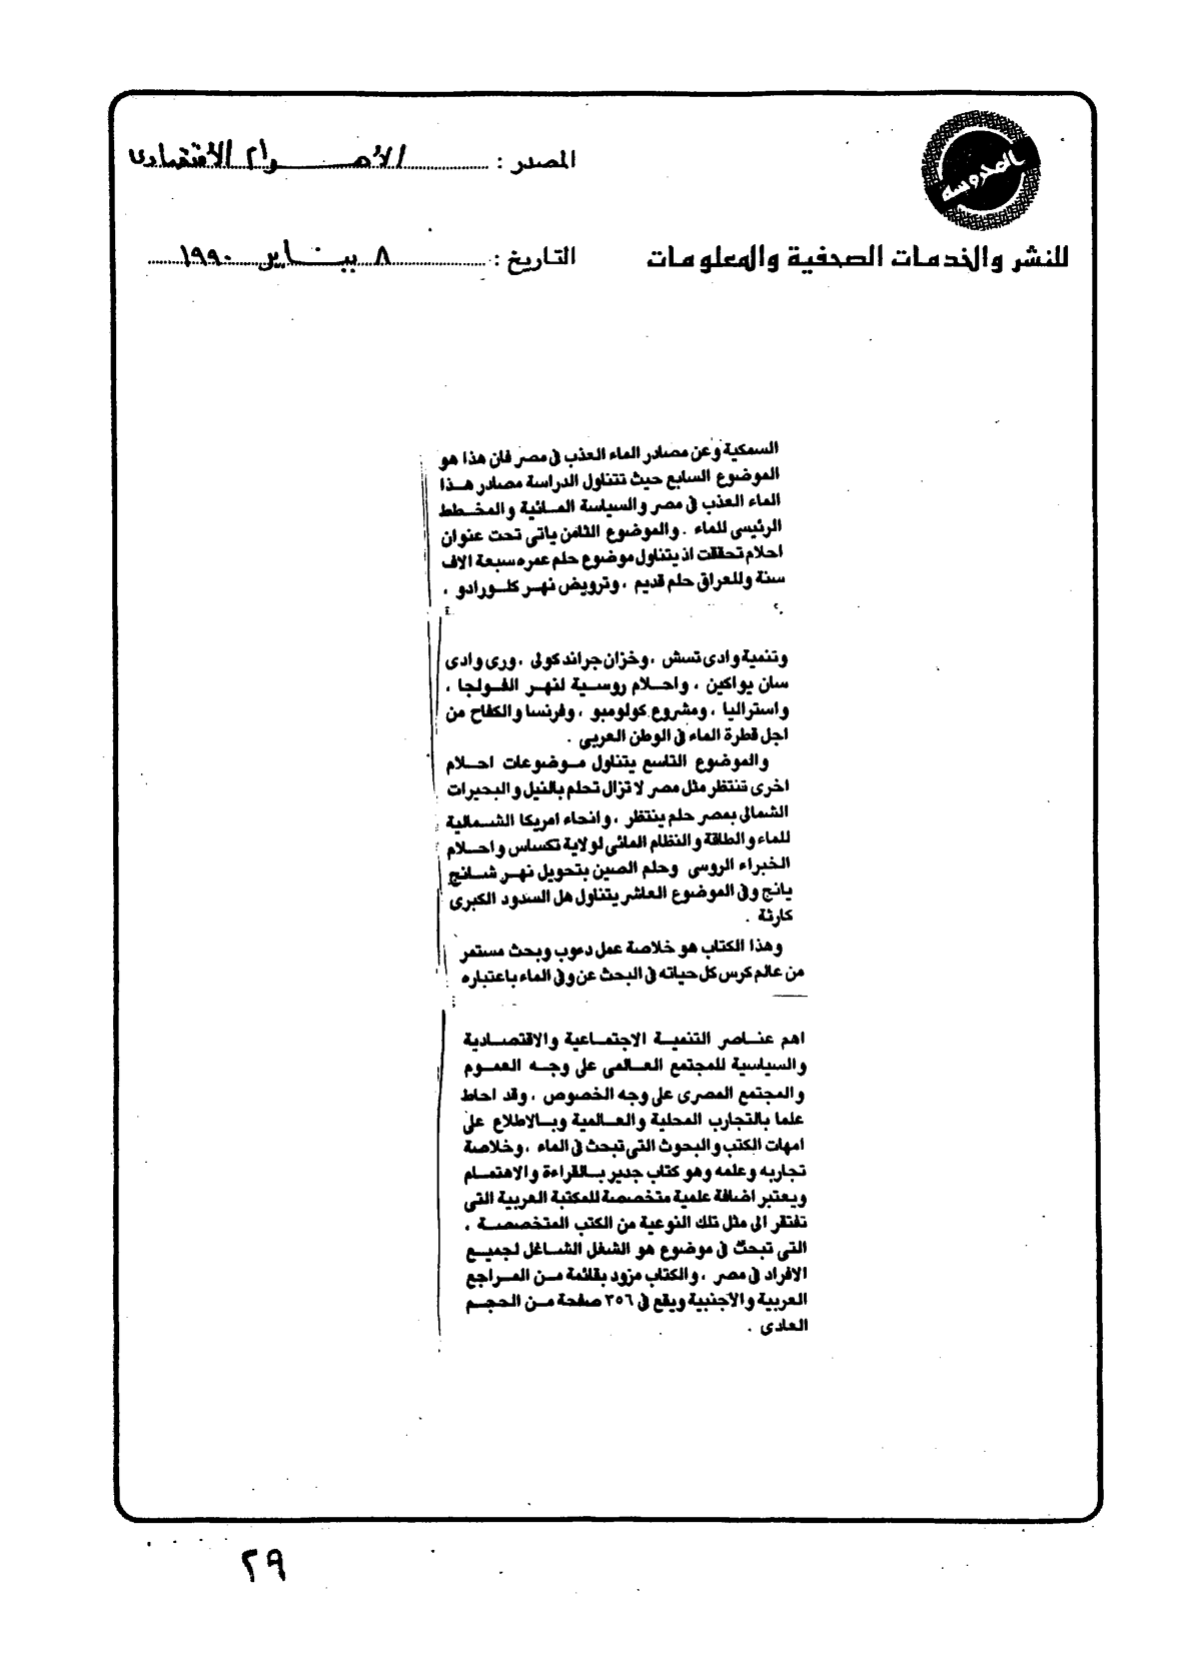 المحروسة
للنشر والخدمات الصحفية والمعلومات
المصدر : الأهرام الاقتصادى
التاريخ : ٨ يناير ١٩٩٠
السمكية وعن مصادر الماء العذب فى مصر فان هذا هو
الموضوع السابع حيث تتناول الدراسة مصادر هذا
الماء العذب فى مصر والسياسة المائية والمخطط
الرئيسى للماء . والموضوع الثامن ياتى تحت عنوان
احلام تحققت اذ يتناول موضوع حلم عمره سبعة الاف
سنة وللعراق حلم قديم ، وترويض نهر كلورادو ،
وتنمية وادى تسش ، وخزان جراند كولى ، ورى وادى
سان يواكين ، واحلام روسية لنهر الفولجا ،
واستراليا ، ومشروع كولومبو ، وفرنسا والكفاح من
اجل قطرة الماء فى الوطن العربى .
والموضوع التاسع يتناول موضوعات احلام
اخرى تنتظر مثل مصر لا تزال تحلم بالنيل والبحيرات
الشمالى بمصر حلم ينتظر ، وانحاء امريكا الشمالية
للماء والطاقة والنظام المائى لولاية تكساس واحلام
الخبراء الروسى وحلم الصين بتحويل نهر شانج
يانج وفى الموضوع العاشر يتناول هل السدود الكبرى
كارثة .
وهذا الكتاب هو خلاصة عمل دءوب وبحث مستمر
من عالم كرس كل حياته فى البحث عن وفى الماء باعتباره
اهم عناصر التنمية الاجتماعية والاقتصادية
والسياسية للمجتمع العالمى على وجه العموم
والمجتمع المصرى على وجه الخصوص ، وقد احاط
علما بالتجارب المحلية والعالمية وبالاطلاع على
امهات الكتب والبحوث التى تبحث فى الماء ، وخلاصة
تجاربه وعلمه وهو كتاب جدير بالقراءة والاهتمام
ويعتبر اضافة علمية متخصصة للمكتبة العربية التى
تفتقر الى مثل تلك النوعية من الكتب المتخصصة ،
التى تبحث فى موضوع هو الشغل الشاغل لجميع
الافراد فى مصر ، والكتاب مزود بقائمة من المراجع
العربية والاجنبية ويقع فى ٣٥٦ صفحة من الحجم
العادى .
٢٩